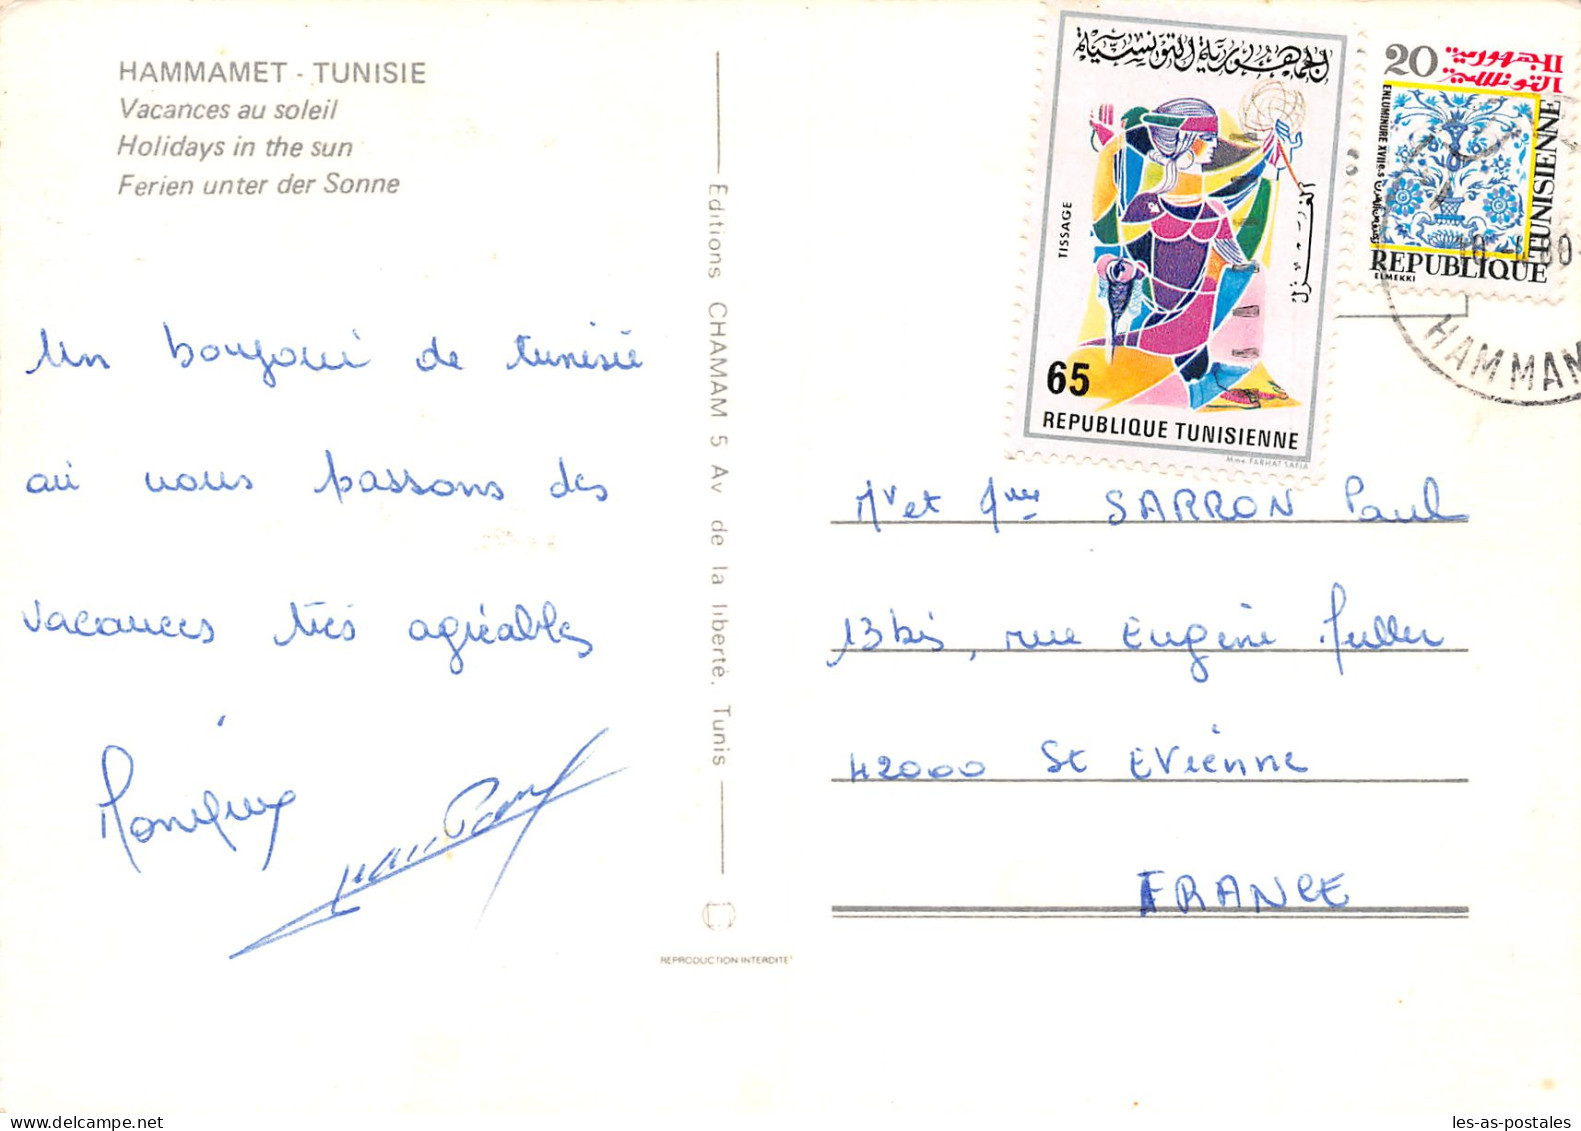 HAMMAMET - TUNISIE
Vacances au soleil
Holidays in the sun
Ferien unter der Sonne
Un bonjour de tunisie
où nous passons des
vacances très agréables
Monique
Jean Paul
Editions CHAMAM 5 Av de la liberté, Tunis
REPRODUCTION INTERDITE
الجمهورية التونسية
TISSAGE
65
REPUBLIQUE TUNISIENNE
Mme FARHAT SAFIA
20
الجمهورية
التونسية
ENLUMINURE XVIIe.s
REPUBLIQUE
TUNISIENNE
ELMEKKI
HAMMAM
Mr et Mme SARRON Paul
13 bis, rue Eugène Muller
42000 St Etienne
FRANCE
les-as-postales